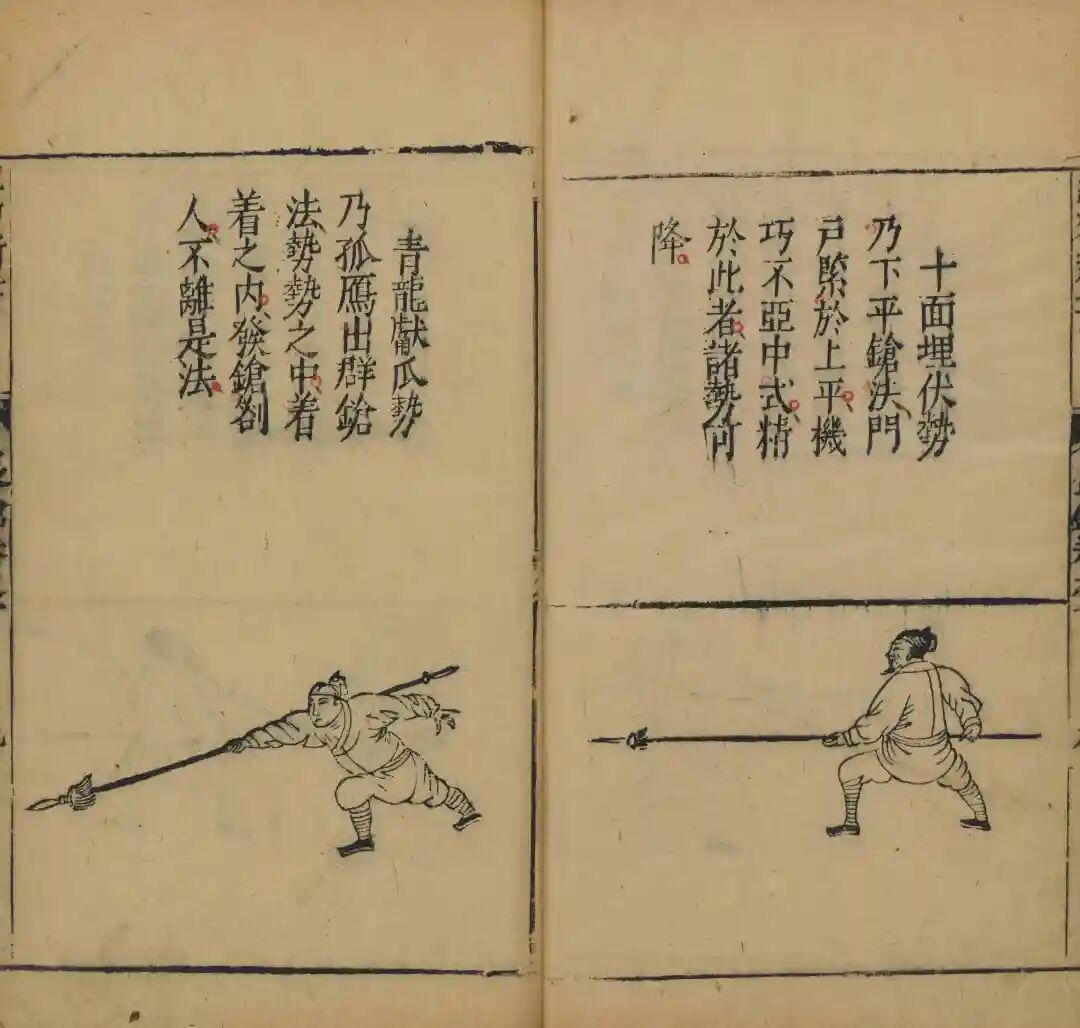 十面埋伏勢
乃下平鎗法門
戶緊於上平機
巧不亞中式精
於此者諸勢可
降
青龍獻爪勢
乃孤鴈出群鎗
法勢勢之中着
着之內發鎗劄
人不離是法